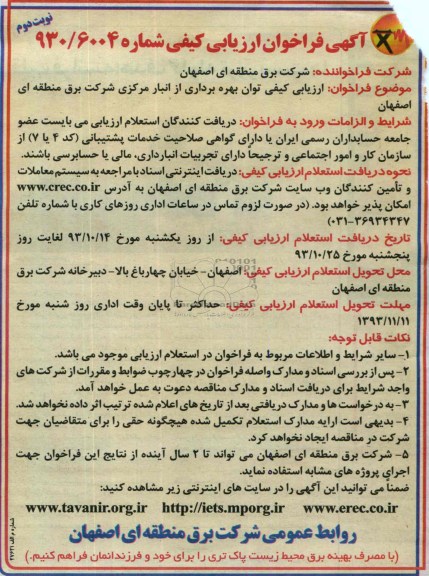 نوبت دوم
آگهی فراخوان ارزیابی کیفی شماره ۹۳۰/۶۰۰۴
شرکت فراخواننده: شرکت برق منطقه ای اصفهان
موضوع فراخوان: ارزیابی کیفی توان بهره برداری از انبار مرکزی شرکت برق منطقه ای
اصفهان
شرایط و الزامات ورود به فراخوان: دریافت کنندگان استعلام ارزیابی می بایست عضو
جامعه حسابداران رسمی ایران یا دارای گواهی صلاحیت خدمات پشتیبانی (کد ۴ یا ۷) از
سازمان کار و امور اجتماعی و ترجیحاً دارای تجربیات انبارداری، مالی یا حسابرسی باشند.
نحوه دریافت استعلام ارزیابی کیفی: دریافت اینترنتی اسناد با مراجعه به سیستم معاملات
و تأمین کنندگان وب سایت شرکت برق منطقه ای اصفهان به آدرس www.erec.co.ir
امکان پذیر خواهد بود. (در صورت لزوم تماس در ساعات اداری روزهای کاری با شماره تلفن
۰۳۱-۳۶۹۳۴۳۴۷)
تاریخ دریافت استعلام ارزیابی کیفی: از روز یکشنبه مورخ ۹۳/۱۰/۱۴ لغایت روز
پنجشنبه مورخ ۹۳/۱۰/۲۵
محل تحویل استعلام ارزیابی کیفی: اصفهان - خیابان چهارباغ بالا- دبیرخانه شرکت برق
منطقه ای اصفهان
مهلت تحویل استعلام ارزیابی کیفی: حداکثر تا پایان وقت اداری روز شنبه مورخ
۱۳۹۳/۱۱/۱۱
نکات قابل توجه:
۱- سایر شرایط و اطلاعات مربوط به فراخوان در استعلام ارزیابی موجود می باشد.
۲- پس از بررسی اسناد و مدارک واصله فراخوان در چهارچوب ضوابط و مقررات از شرکت های
واجد شرایط برای دریافت اسناد و مدارک مناقصه دعوت به عمل خواهد آمد.
۳- به درخواست ها و مدارک دریافتی بعد از تاریخ های اعلام شده ترتیب اثر داده نخواهد شد.
۴- بدیهی است ارایه مدارک استعلام تکمیل شده هیچگونه حقی را برای متقاضیان جهت
شرکت در مناقصه ایجاد نخواهد کرد.
۵- شرکت برق منطقه ای اصفهان می تواند تا ۲ سال آینده از نتایج این فراخوان جهت
اجرای پروژه های مشابه استفاده نماید.
ضمناً می توانید این آگهی را در سایت های اینترنتی زیر مشاهده کنید:
www.tavanir.org.ir http://iets.mporg.ir www.erec.co.ir
روابط عمومی شرکت برق منطقه ای اصفهان
(با مصرف بهینه برق محیط زیست پاک تری را برای خود و فرزندانمان فراهم کنیم.)